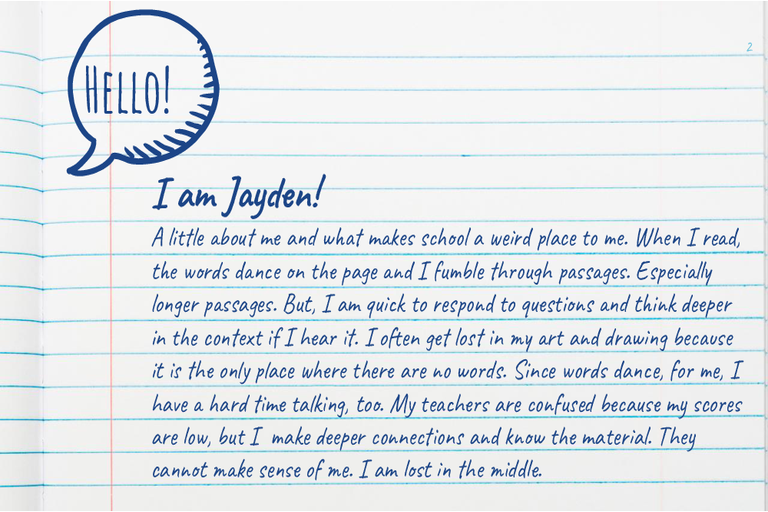 2
HELLO!
I am Jayden!
A little about me and what makes school a weird place to me. When I read,
the words dance on the page and I fumble through passages. Especially
longer passages. But, I am quick to respond to questions and think deeper
in the context if I hear it. I often get lost in my art and drawing because
it is the only place where there are no words. Since words dance, for me, I
have a hard time talking, too. My teachers are confused because my scores
are low, but I make deeper connections and know the material. They
cannot make sense of me. I am lost in the middle.